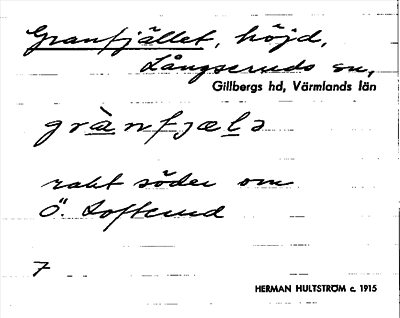 Granfjället, höjd,
Långseruds sn,
Gillbergs hd, Värmlands län
grànfjæls
rakt söder om
Ö. Tofterud
7
HERMAN HULTSTRÖM c. 1915